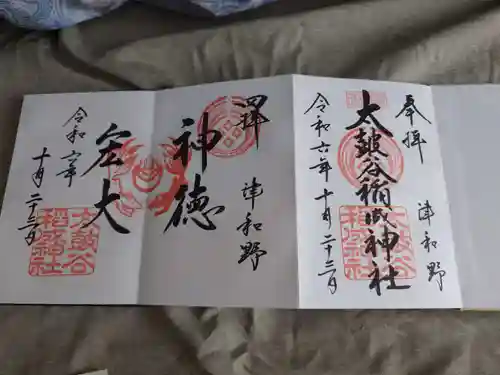 奉拝
津和野
太皷谷稲成神社
令和六年十月二十二月
拝
津和野
神徳
宏大
令和六年
十月二十二日
太皷谷
稲成神社